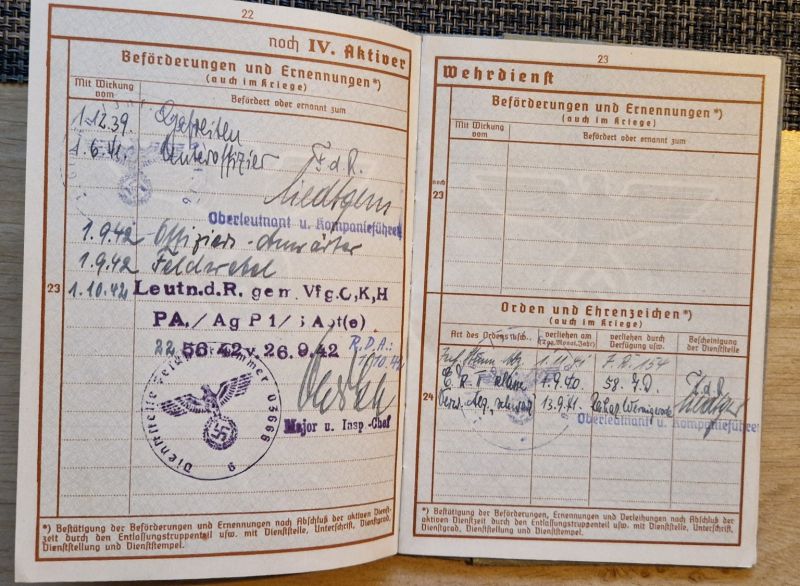 22
noch IV. Aktiver
Beförderungen und Ernennungen*)
(auch im Kriege)
Mit Wirkung vom
Befördert oder ernannt zum
1.12.39. Gefreiten
1.6.41. Unteroffizier F.d.R.
Oberleutnant u. Kompanieführer
1.9.42 Offiziers-Anwärter
1.9.42 Feldwebel
23
1.10.42 Leutn.d.R. gem. Vfg.O,K,H
PA./Ag P1/
56.42 v. 26.9.42 R.D.A.:
1.10.42
Major u. Insp.-Chef
Dienststelle Feldpostnummer 03666
*) Bestätigung der Beförderungen und Ernennungen nach Abschluß der aktiven Dienst-
zeit durch den Entlassungstruppenteil usw. mit Dienststelle, Unterschrift, Dienstgrad,
Dienststellung und Dienststempel.
23
Wehrdienst
Beförderungen und Ernennungen*)
(auch im Kriege)
Mit Wirkung vom
Befördert oder ernannt zum
noch
23
Orden und Ehrenzeichen*)
(auch im Kriege)
Art des Ordens usw.
verliehen am
(Tag, Monat, Jahr)
verliehen durch
Verfügung usw.
Bescheinigung
der Dienststelle
1.11.41 J.R. 154
E.K. II. Klasse 7.9.40 58. J.D. F.d.R.
24
Verw. Abz. schwarz 13.9.41. Res. Laz. Wernigerode
Oberleutnant u. Kompanieführer
*) Bestätigung der Beförderungen, Ernennungen und Verleihungen nach Abschluß der
aktiven Dienstzeit durch den Entlassungstruppenteil usw. mit Dienststelle, Unterschrift,
Dienstgrad, Dienststellung und Dienststempel.